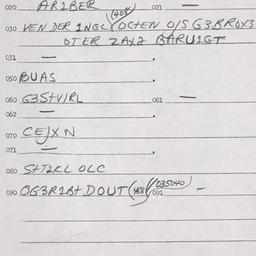 020 AR1BER 021 —
030 VEN DER 1NGL (408) OCTEN O/S G3BROX3
OTER ZAXZ BARU1GT
031 — .
050 BUAS
060 G3S+V/RL 061 —
062 — .
070 CEJXN
071 — .
080 S+TZKL OLC
090 OG3R1B+ DOUT (488) (035040) 091 —